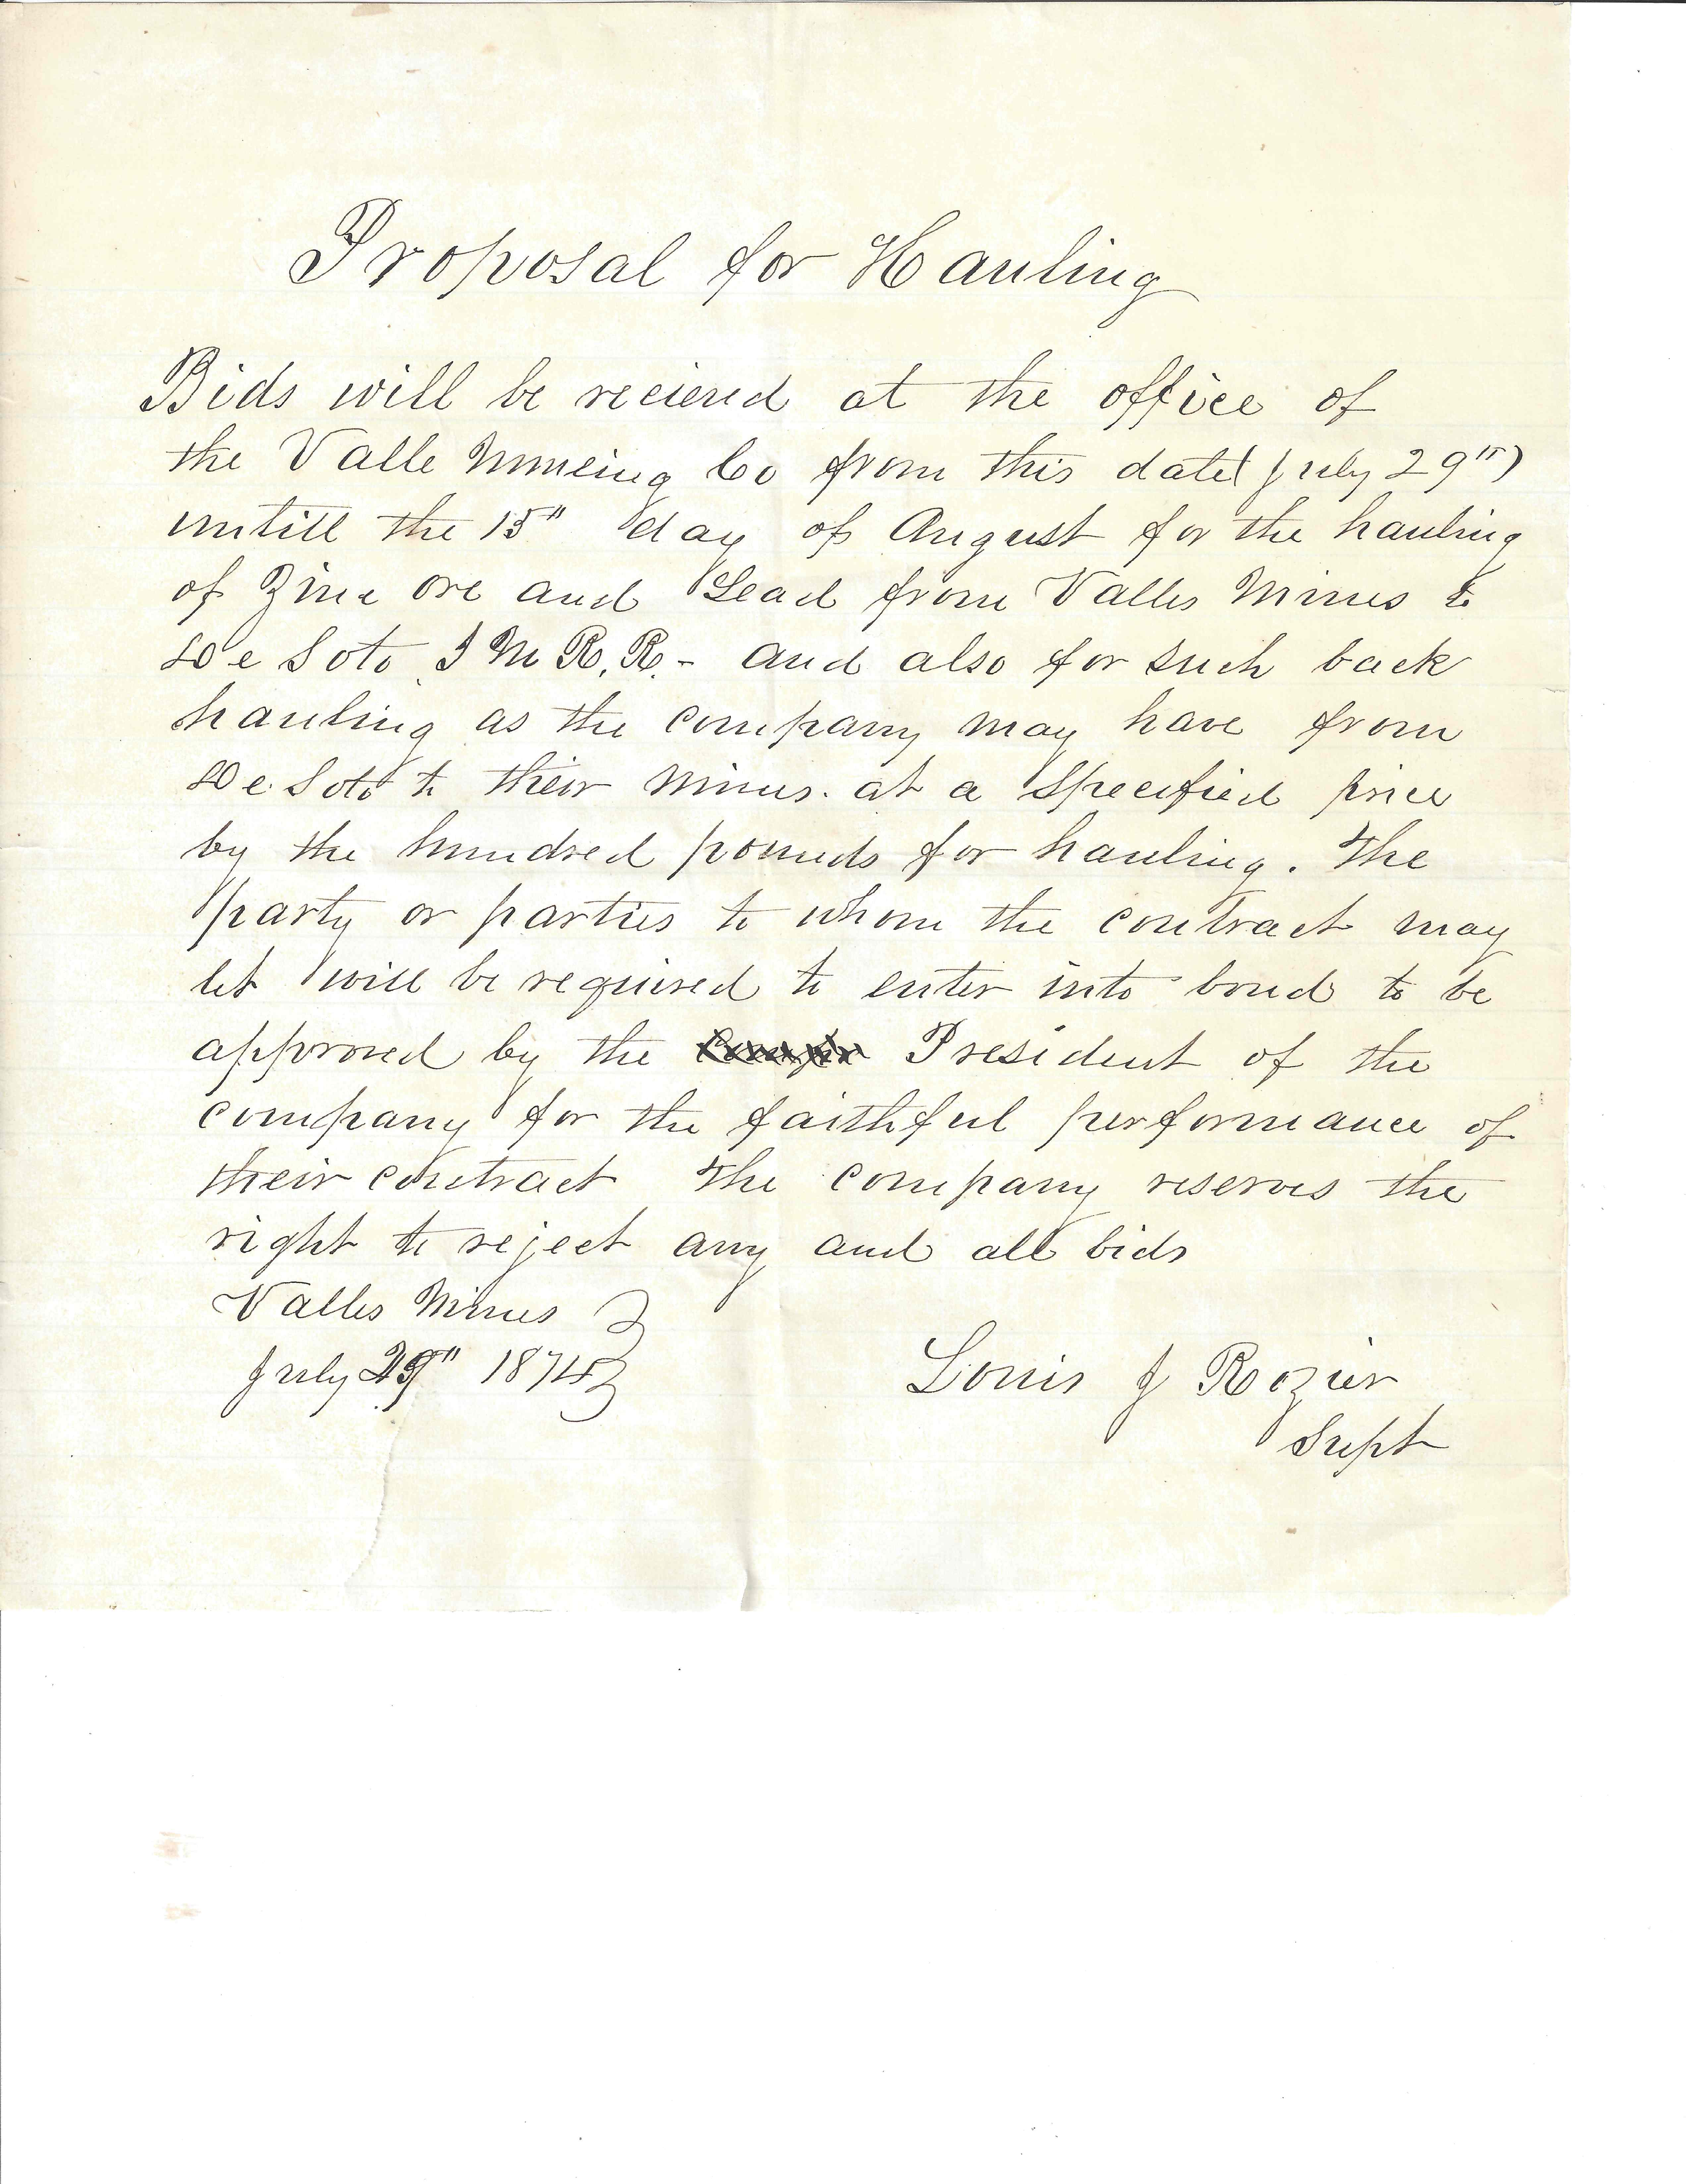 Proposal for Hauling
Bids will be recieved at the office of
the Valle Mineing Co from this date (July 29")
untill the 15" day of August for the hauling
of Zinc ore and Lead from Valles Mines to
De Soto I M R. R. - and also for such back
hauling as the company may have from
De Soto to their mines. at a specified price
by the hundred pounds for hauling. The
party or parties to whom the contract may
let will be required to enter into bond to be
approved by the President of the
company for the faithful performance of
their contract The company reserves the
right to reject any and all bids
Valles Mines
July 29" 1874
Louis J Rozier
Supt